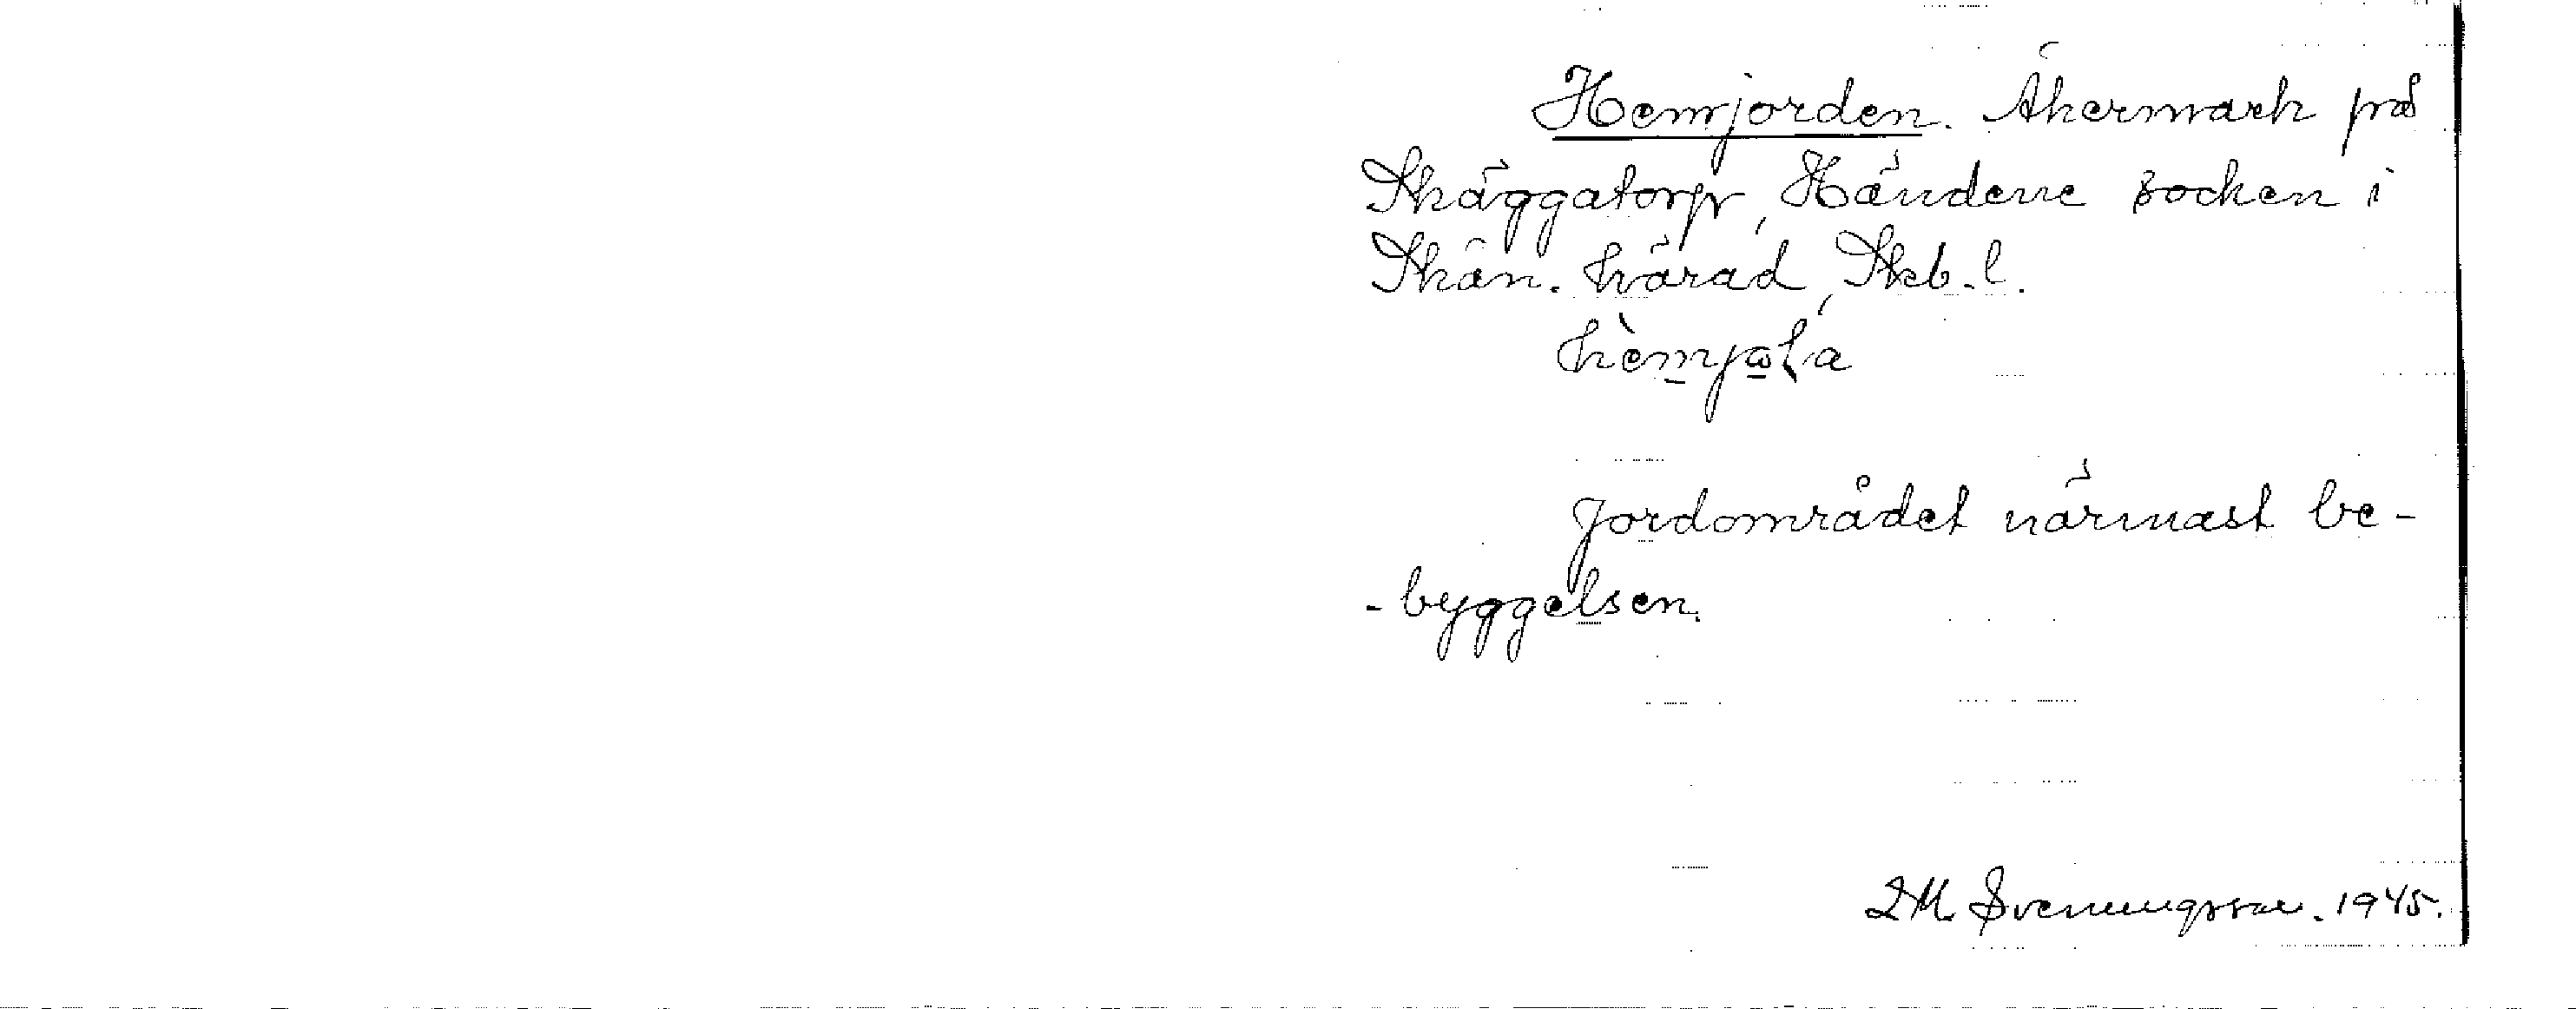 Hemjorden. Åkermark på
Skäggatorp, Händene socken i
Skån. härad, Skb. l.
hèmjɷⱡa
Jordområdet närmast be-
-byggelsen.
LM Svenungsson. 1945.